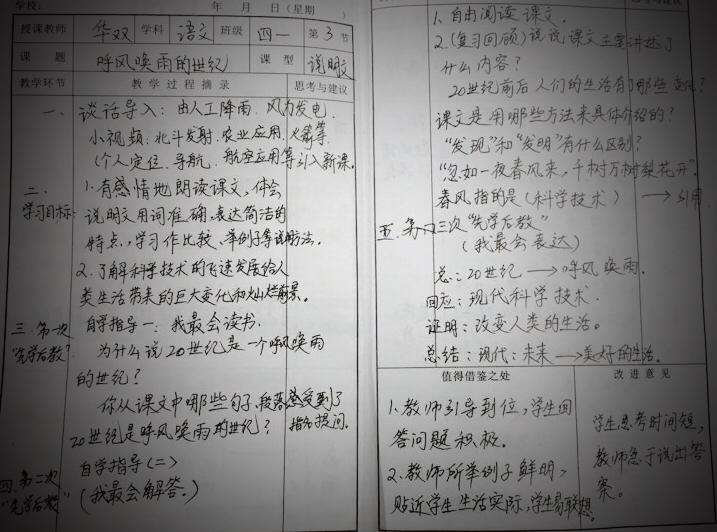 学校： 年 月 日（星期 ）
授课教师 华双 学科 语文 班级 四一 第 3 节
课 题 呼风唤雨的世纪 课 型 说明文
教学环节 教 学 过 程 摘 录 思考与建议
一、 谈话导入：由人工降雨、风力发电、
小视频：北斗发射、农业应用、火箭等
（个人定位、导航、航空应用等引入新课。
二、 1.有感情地朗读课文，体会
学习目标： 说明文用词准确，表达简洁的
特点，学习作比较、举例子等说明方法。
2.了解科学技术的飞速发展给人
类生活带来的巨大变化和灿烂前景。
三、第一次 自学指导一：我最会读书.
"先学后教" 为什么说20世纪是一个呼风唤雨
的世纪？
你从课文中哪些句子、段落感受到了
20世纪是呼风唤雨的世纪？ 指名提问.
四、第二次 自学指导（二）
"先学后教" （我最会解答。）
1.自由阅读课文.
2.(复习回顾)说说课文主要讲述了
什么内容？
20世纪前后人们的生活有了哪些变化？
课文是用哪些方法来具体介绍的？
"发现"和"发明"有什么区别？
"忽如一夜春风来，千树万树梨花开".
春风指的是（科学技术） → 引用
五、第三次"先学后教"
（我最会表达）
总：20世纪 → 呼风唤雨.
回应：现代科学技术.
证明：改变人类的生活。
总结：现代：未来→美好的生活.
值得借鉴之处 改 进 意 见
1.教师引导到位，学生回
答问题积极。
2.教师所举例子鲜明，
贴近学生生活实际，学生易联想.
学生思考时间短，
教师急于说出答
案。